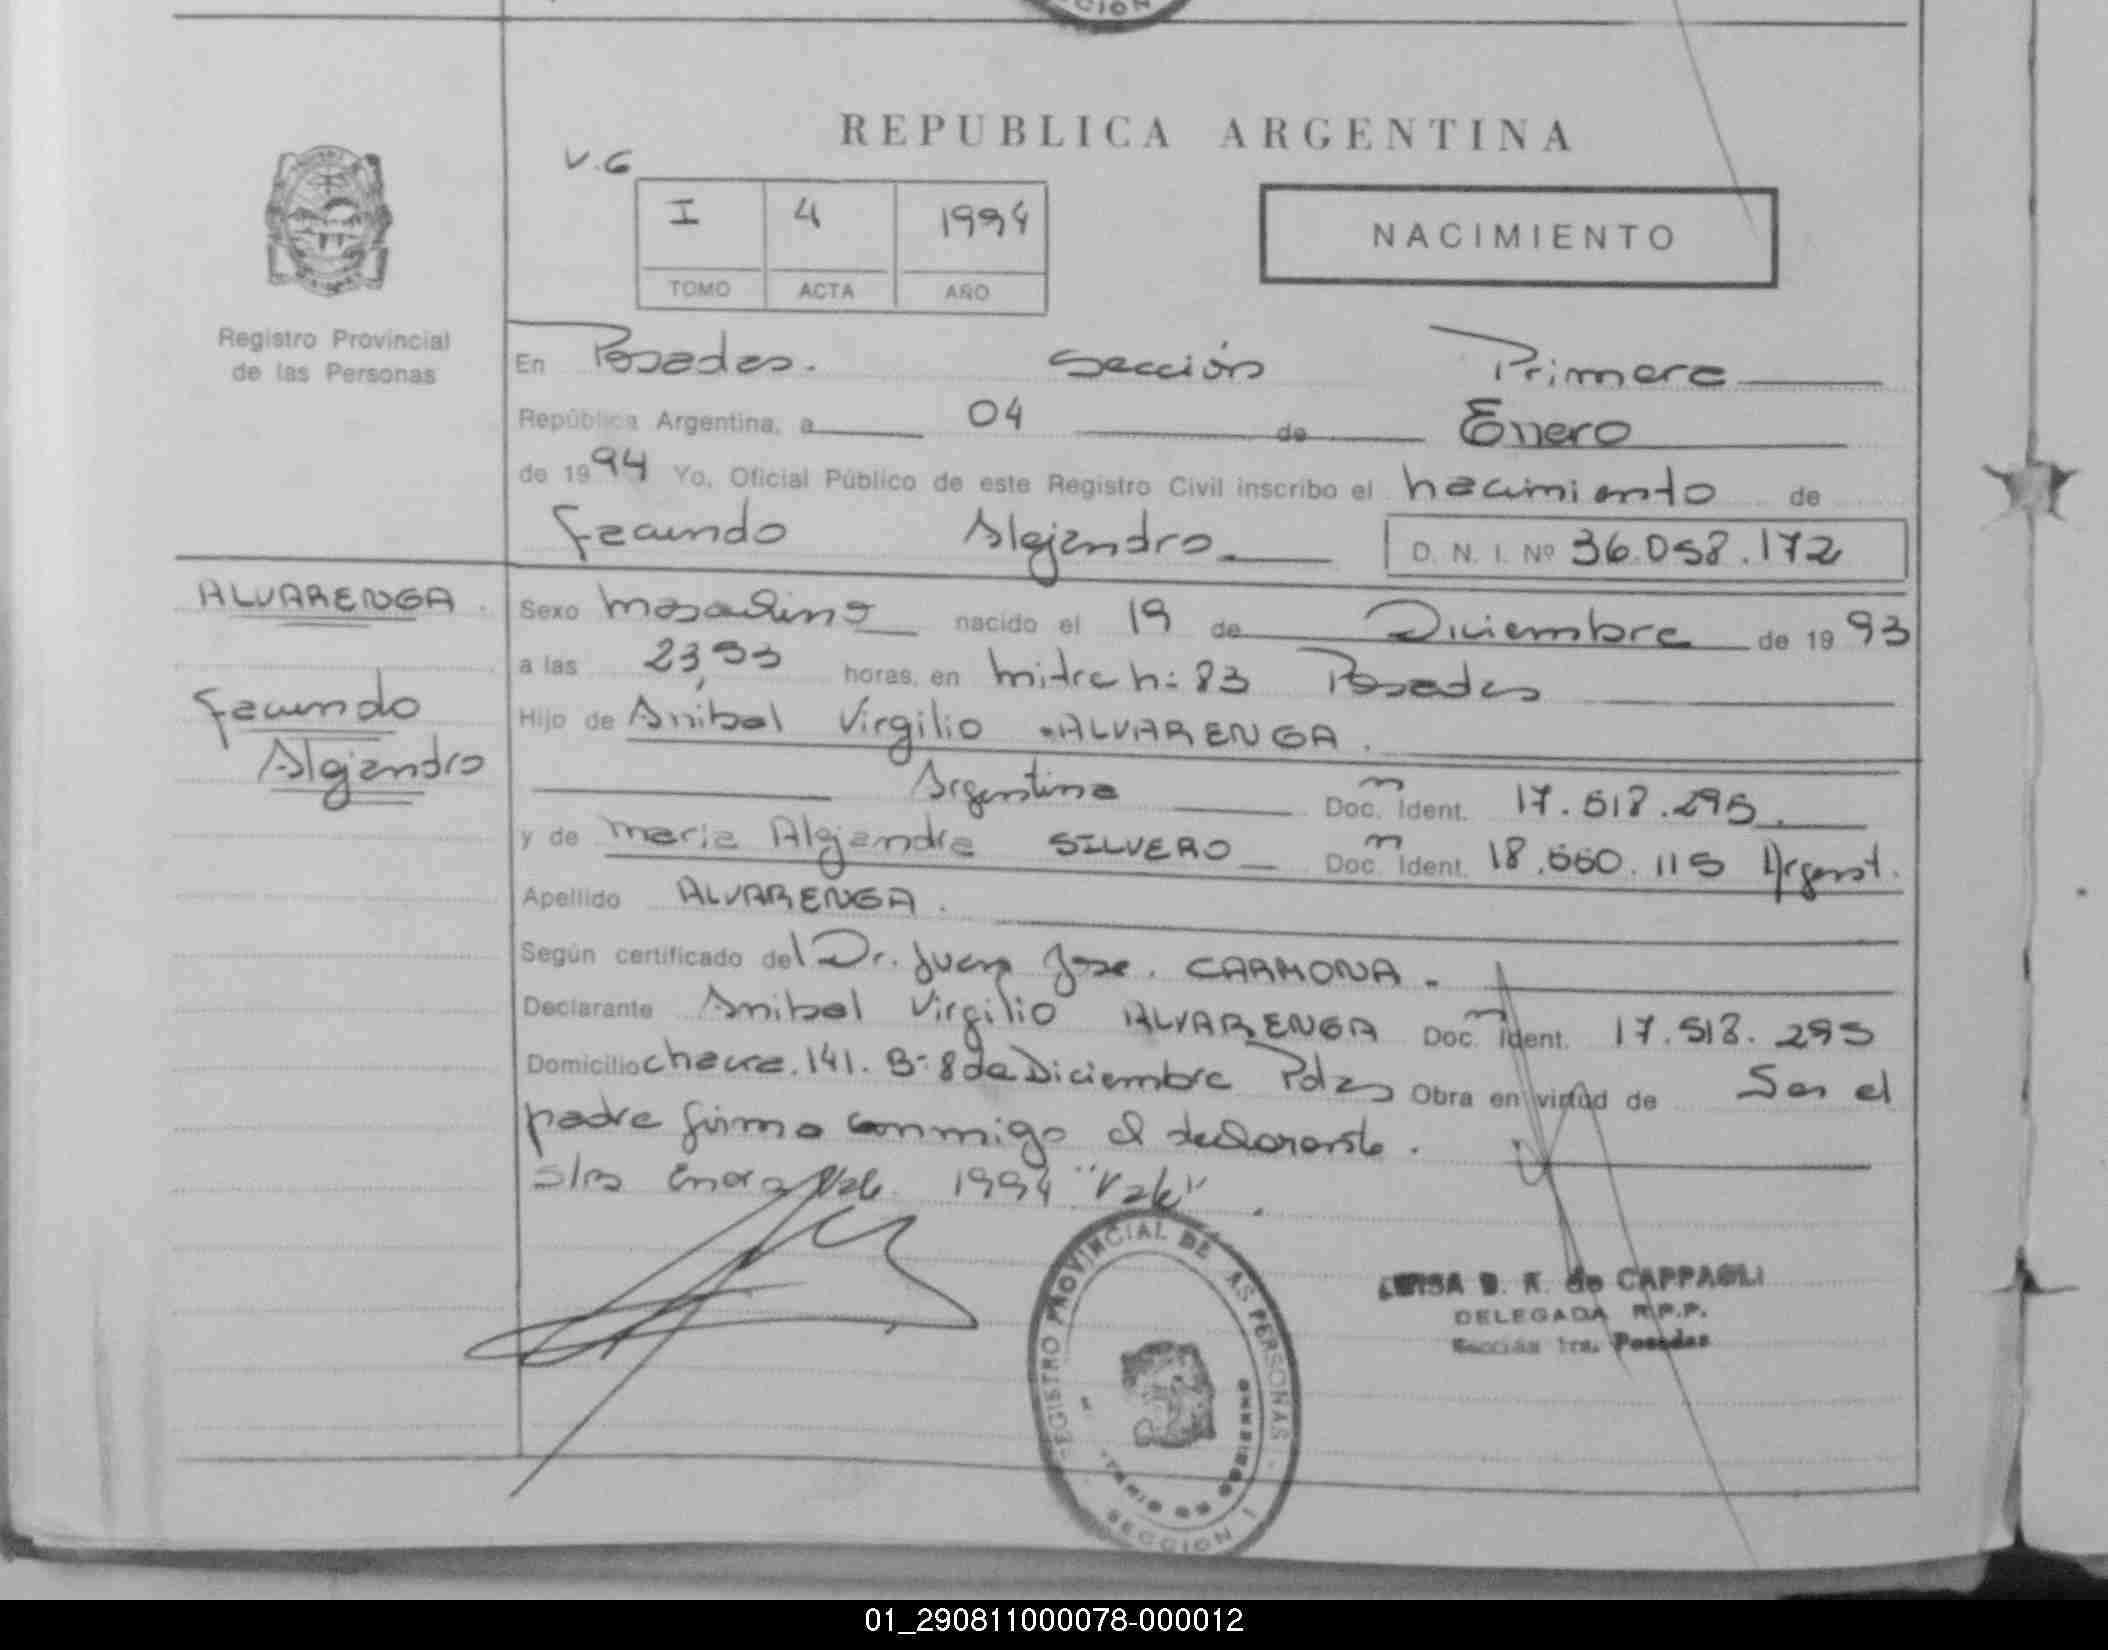 CION
REPUBLICA ARGENTINA
V.G
I 4 1994
TOMO ACTA AÑO
NACIMIENTO
Registro Provincial
de las Personas
En Posadas. Sección Primera
República Argentina, a 04 de Enero
de 1994 Yo, Oficial Público de este Registro Civil inscribo el nacimiento de
Facundo Alejandro D. N. I. Nº 36.058.172
ALVARENGA.
Facundo
Alejandro
Sexo masculino nacido el 19 de Diciembre de 1993
a las 23,55 horas, en mitre n: 83 Posadas
Hijo de Anibal Virgilio ALVARENGA.
Argentina Doc. Ident. 17.518.295.
y de maria Alejandra SILVERO Doc. Ident. 18.660.115 Argent.
Apellido ALVARENGA.
Según certificado del Dr. Juan Jose. CARMONA.
Declarante Anibal Virgilio ALVARENGA Doc. Ident. 17.518.295
Domicilio chacra.141. B: 8 de Diciembre Pdas Obra en virtud de Ser el
padre firma conmigo el declarante.
s/rs Enero Vale. 1994 "Vale".
REGISTRO PROVINCIAL DE LAS PERSONAS
SECCION 1
LUISA B. R. de CAPPAGLI
DELEGADA R.P.P.
Sección 1ra. Posadas
01_290811000078-000012